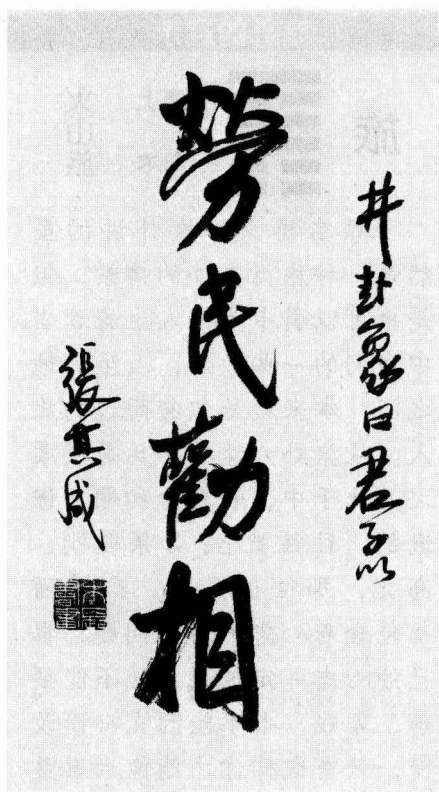 井卦象曰君子以
勞民勸相
張其成